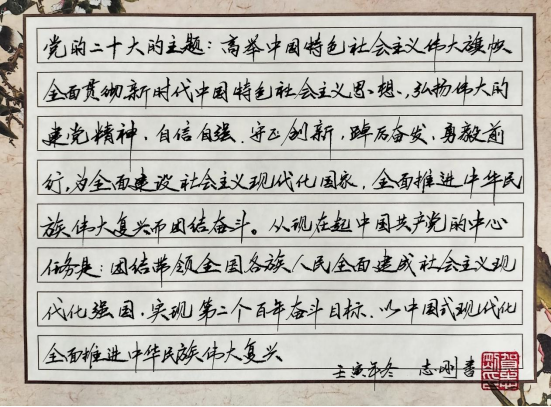 党的二十大的主题：高举中国特色社会主义伟大旗帜
全面贯彻新时代中国特色社会主义思想，弘扬伟大的
建党精神，自信自强、守正创新，踔厉奋发、勇毅前
行，为全面建设社会主义现代化国家、全面推进中华民
族伟大复兴而团结奋斗。从现在起中国共产党的中心
任务是：团结带领全国各族人民全面建成社会主义现
代化强国，实现第二个百年奋斗目标，以中国式现代化
全面推进中华民族伟大复兴
壬寅年冬 志刚书